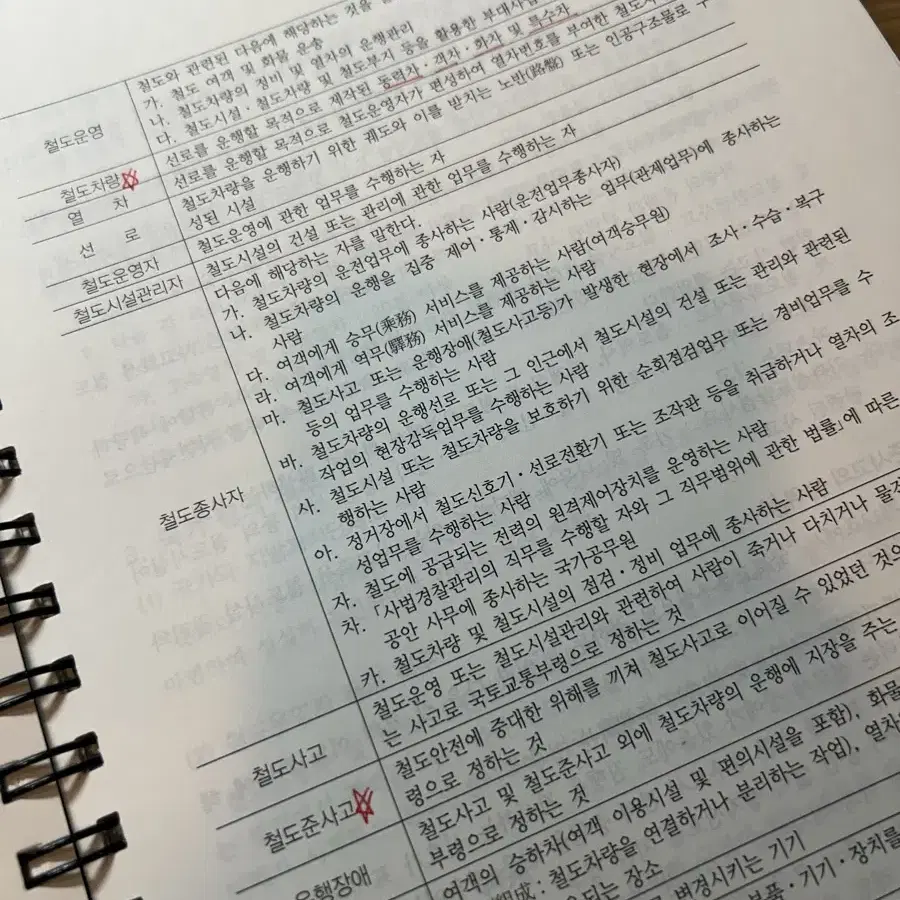 철도와 관련된 다음에 해당하는 것을
가. 철도 여객 및 화물 운송
나. 철도차량의 정비 및 열차의 운행관리
철도운영 다. 철도시설·철도차량 및 철도부지 등을 활용한 부대사업
철도차량 선로를 운행할 목적으로 제작된 동력차·객차·화차 및 특수차
열 차 선로를 운행할 목적으로 철도운영자가 편성하여 열차번호를 부여한 철도차
선 로 철도차량을 운행하기 위한 궤도와 이를 받치는 노반(路盤) 또는 인공구조물로 구
성된 시설
철도운영자 철도운영에 관한 업무를 수행하는 자
철도시설관리자 철도시설의 건설 또는 관리에 관한 업무를 수행하는 자
다음에 해당하는 자를 말한다.
가. 철도차량의 운전업무에 종사하는 사람(운전업무종사자)
나. 철도차량의 운행을 집중 제어·통제·감시하는 업무(관제업무)에 종사하는
사람
다. 여객에게 승무(乘務) 서비스를 제공하는 사람(여객승무원)
라. 여객에게 역무(驛務) 서비스를 제공하는 사람
마. 철도사고 또는 운행장애(철도사고등)가 발생한 현장에서 조사·수습·복구
등의 업무를 수행하는 사람
바. 철도차량의 운행선로 또는 그 인근에서 철도시설의 건설 또는 관리와 관련된
작업의 현장감독업무를 수행하는 사람
철도종사자 사. 철도시설 또는 철도차량을 보호하기 위한 순회점검업무 또는 경비업무를 수
행하는 사람
아. 정거장에서 철도신호기·선로전환기 또는 조작판 등을 취급하거나 열차의 조
성업무를 수행하는 사람
자. 철도에 공급되는 전력의 원격제어장치를 운영하는 사람
차. 「사법경찰관리의 직무를 수행할 자와 그 직무범위에 관한 법률」에 따른
공안 사무에 종사하는 국가공무원
카. 철도차량 및 철도시설의 점검·정비 업무에 종사하는 사람
철도사고 철도운영 또는 철도시설관리와 관련하여 사람이 죽거나 다치거나 물건
는 사고로 국토교통부령으로 정하는 것
철도준사고 철도안전에 중대한 위해를 끼쳐 철도사고로 이어질 수 있었던 것으
령으로 정하는 것
운행장애 철도사고 및 철도준사고 외에 철도차량의 운행에 지장을 주는
부령으로 정하는 것
여객의 승하차(여객 이용시설 및 편의시설을 포함), 화물
組成 : 철도차량을 연결하거나 분리하는 작업), 열차
되는 장소
변경시키는 기기
부품·기기·장치를